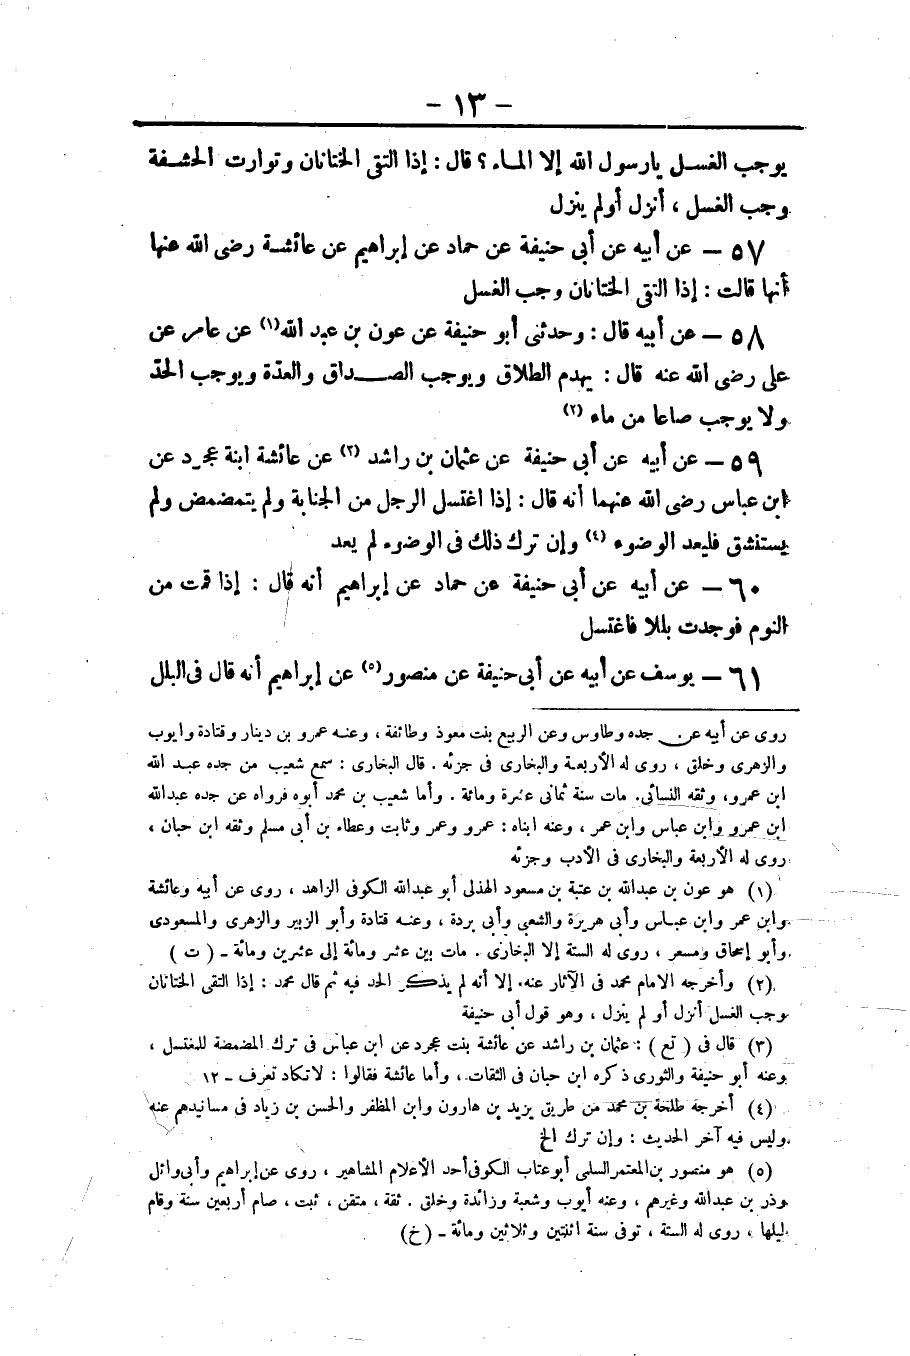 - ١٣ -
يوجب الغسل يارسول الله إلا الماء ؟ قال : إذا التقى الختانان وتوارت الحشفة
وجب الغسل ، أنزل أولم ينزل
٥٧ – عن أبيه عن أبى حنيفة عن حماد عن إبراهيم عن عائشة رضى الله عنها
أنها قالت : إذا التقى الختانان وجب الغسل
٥٨ – عن أبيه قال : وحدثنى أبو حنيفة عن عون بن عبد الله (١) عن عامر عن
على رضى الله عنه قال : يهدم الطلاق ويوجب الصداق والعدة ويوجب الحد
ولا يوجب صاعا من ماء (٢)
٥٩ – عن أبيه عن أبى حنيفة عن عثمان بن راشد (٣) عن عائشة ابنة عجرد عن
ابن عباس رضى الله عنهما أنه قال : إذا اغتسل الرجل من الجنابة ولم يتمضمض ولم
يستنشق فليعد الوضوء (٤) وإن ترك ذلك فى الوضوء لم يعد
٦٠ – عن أبيه عن أبى حنيفة عن حماد عن إبراهيم أنه قال : إذا قمت من
النوم فوجدت بللا فاغتسل
٦١ – يوسف عن أبيه عن أبى حنيفة عن منصور (٥) عن إبراهيم أنه قال فى البلل
روى عن أبيه عن جده وطاوس وعن الربيع بنت معوذ وطائفة ، وعنه عمرو بن دينار وقتادة وايوب
والزهرى وخلق ، روى له الأربعة والبخارى فى جزئه . قال البخارى : سمع شعيب من جده عبد الله
ابن عمرو، وثقه النسائى. مات سنة ثمانى عشرة ومائة . وأما شعيب بن محمد أبوه فرواه عن جده عبدالله
ابن عمرو وابن عباس وابن عمر ، وعنه ابناه : عمرو وعمر وثابت وعطاء بن أبى مسلم وثقه ابن حبان ،
روى له الأربعة والبخارى فى الأدب وجزئه
(١) هو عون بن عبدالله بن عتبة بن مسعود الهذلى أبو عبدالله الكوفى الزاهد ، روى عن أبيه وعائشة
وابن عمر وابن عباس وأبى هريرة والشعبى وأبى بردة ، وعنه قتادة وأبو الزبير والزهرى والمسعودى
وأبو إسحاق ومسعر ، روى له الستة إلا البخارى . مات بين عشر ومائة إلى عشرين ومائة - ( ت )
(٢) وأخرجه الامام محمد فى الآثار عنه، إلا أنه لم يذكر الحد فيه ثم قال محمد : إذا التقى الختانان
وجب الغسل أنزل أو لم ينزل ، وهو قول أبى حنيفة
(٣) قال فى ( تع ) : عثمان بن راشد عن عائشة بنت عجرد عن ابن عباس فى ترك المضمضة للمغتسل ،
وعنه أبو حنيفة والثورى ذكره ابن حبان فى الثقات ، وأما عائشة فقالوا : لاتكاد تعرف - ١٢
(٤) أخرجه طلحة بن محمد من طريق يزيد بن هارون وابن المظفر والحسن بن زياد فى مسانيدهم عنه
وليس فيه آخر الحديث : وإن ترك الخ
(٥) هو منصور بن المعتمر السلمى أبو عتاب الكوفى أحد الأعلام المشاهير ، روى عن إبراهيم وأبى وائل
وذر بن عبدالله وغيرهم ، وعنه أيوب وشعبة وزائدة وخلق . ثقة ، متقن ، ثبت ، صام أربعين سنة وقام
ليلها ، روى له الستة ، توفى سنة اثنتين وثلاثين ومائة - (خ)